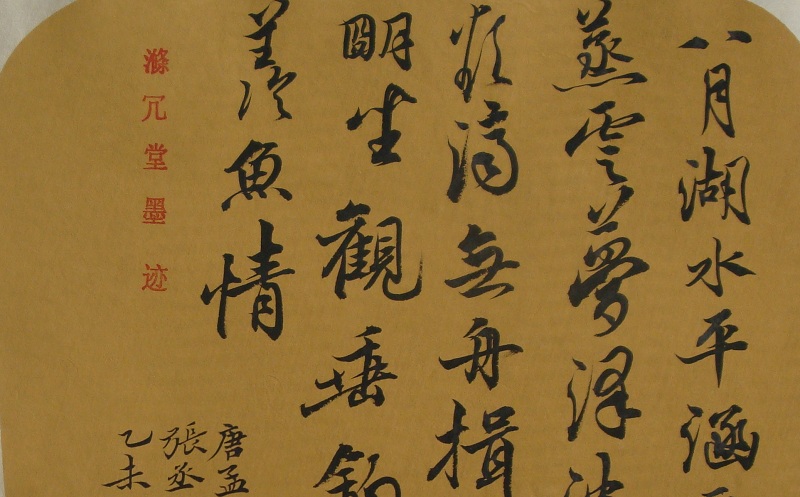 八月湖水平涵
蒸雲夢澤波
欲濟無舟楫
朙坐觀垂釣
羨魚情
唐孟
張丞
乙未
滌冗堂墨迹